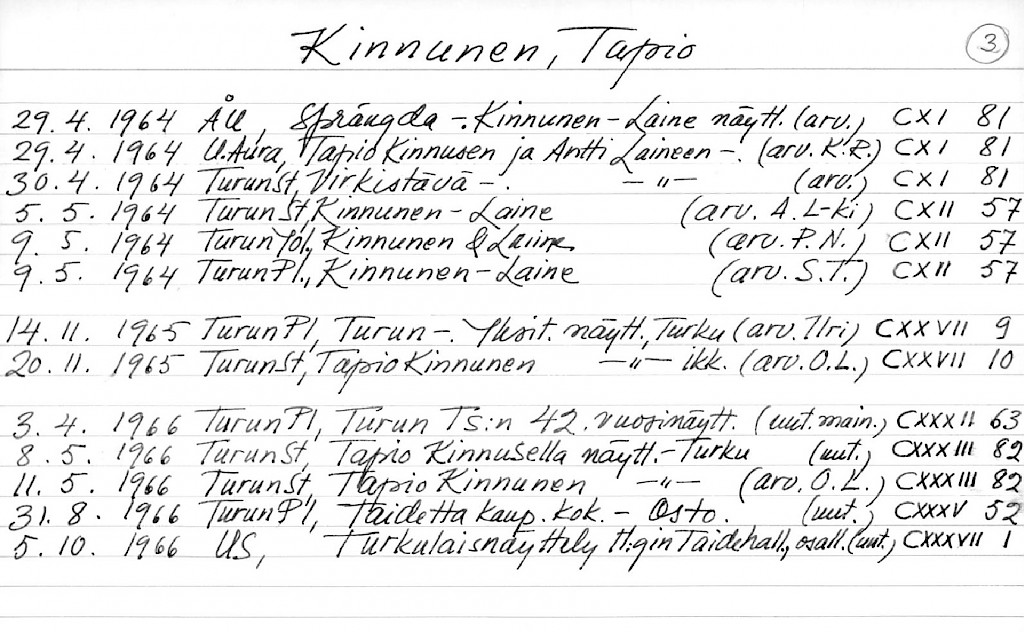 Kinnunen, Tapio 3
29. 4. 1964 ÅU, Sprängda -. Kinnunen - Laine näytt. (arv.) CXI 81
29. 4. 1964 U.Aura, Tapio Kinnusen ja Antti Laineen -. (arv. K.R.) CXI 81
30. 4. 1964 TurunSt, Virkistävä -. -"- (arv.) CXI 81
5. 5. 1964 TurunSt, Kinnunen - Laine (arv. A. L-ki) CXII 57
9. 5. 1964 Turun Yol., Kinnunen & Laine (arv. P.N.) CXII 57
9. 5. 1964 TurunPl., Kinnunen - Laine (arv. S.T.) CXII 57
14. 11. 1965 TurunPl, Turun -. Yksit. näytt., Turku (arv. Ilri) CXXVII 9
20. 11. 1965 TurunSt, Tapio Kinnunen -"- ikk. (arv. O.L.) CXXVII 10
3. 4. 1966 TurunPl, Turun TS:n 42. vuosinäytt. (uut. main.) CXXXII 63
8. 5. 1966 TurunSt, Tapio Kinnusella näytt. - Turku (uut.) CXXXIII 82
11. 5. 1966 TurunSt, Tapio Kinnunen -"- (arv. O.L.) CXXXIII 82
31. 8. 1966 TurunPl, Taidetta kaup. kok. - Osto. (uut.) CXXXV 52
5. 10. 1966 US, Turkulaisnäyttely H:gin Taidehall., osall. (uut.) CXXXVII 1